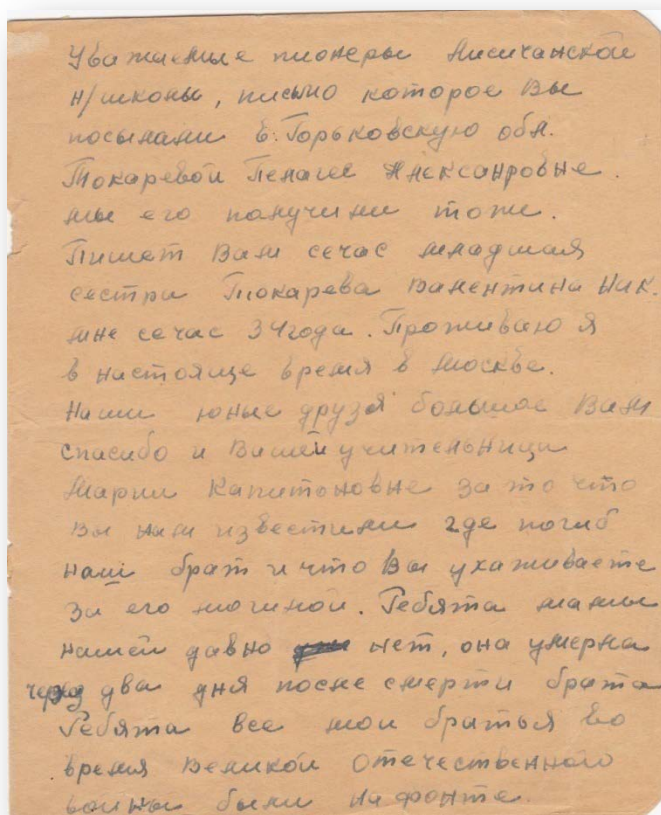 Уважаемые пионеры Лисичанской
н/школы, письмо которое Вы
посылали в. Горьковскую обл.
Токаревой Пелагее Александровне.
мы его получили тоже.
Пишет Вам сечас младшая
сестра Токарева Валентина Ник.
мне сечас 34 года. Проживаю я
в настояще время в Москве.
Наши юные друзя большое Вам
спасибо и Вашей учительници
Марии Капитоновне за то что
Вы нам известили где погиб
наш брат и что Вы ухаживаете
за его могилой. Ребята мамы
нашей давно нет, она умерла
через два дня после смерти брата
Ребята все мои братья во
время Великой Отечественного
войны были на фонте.